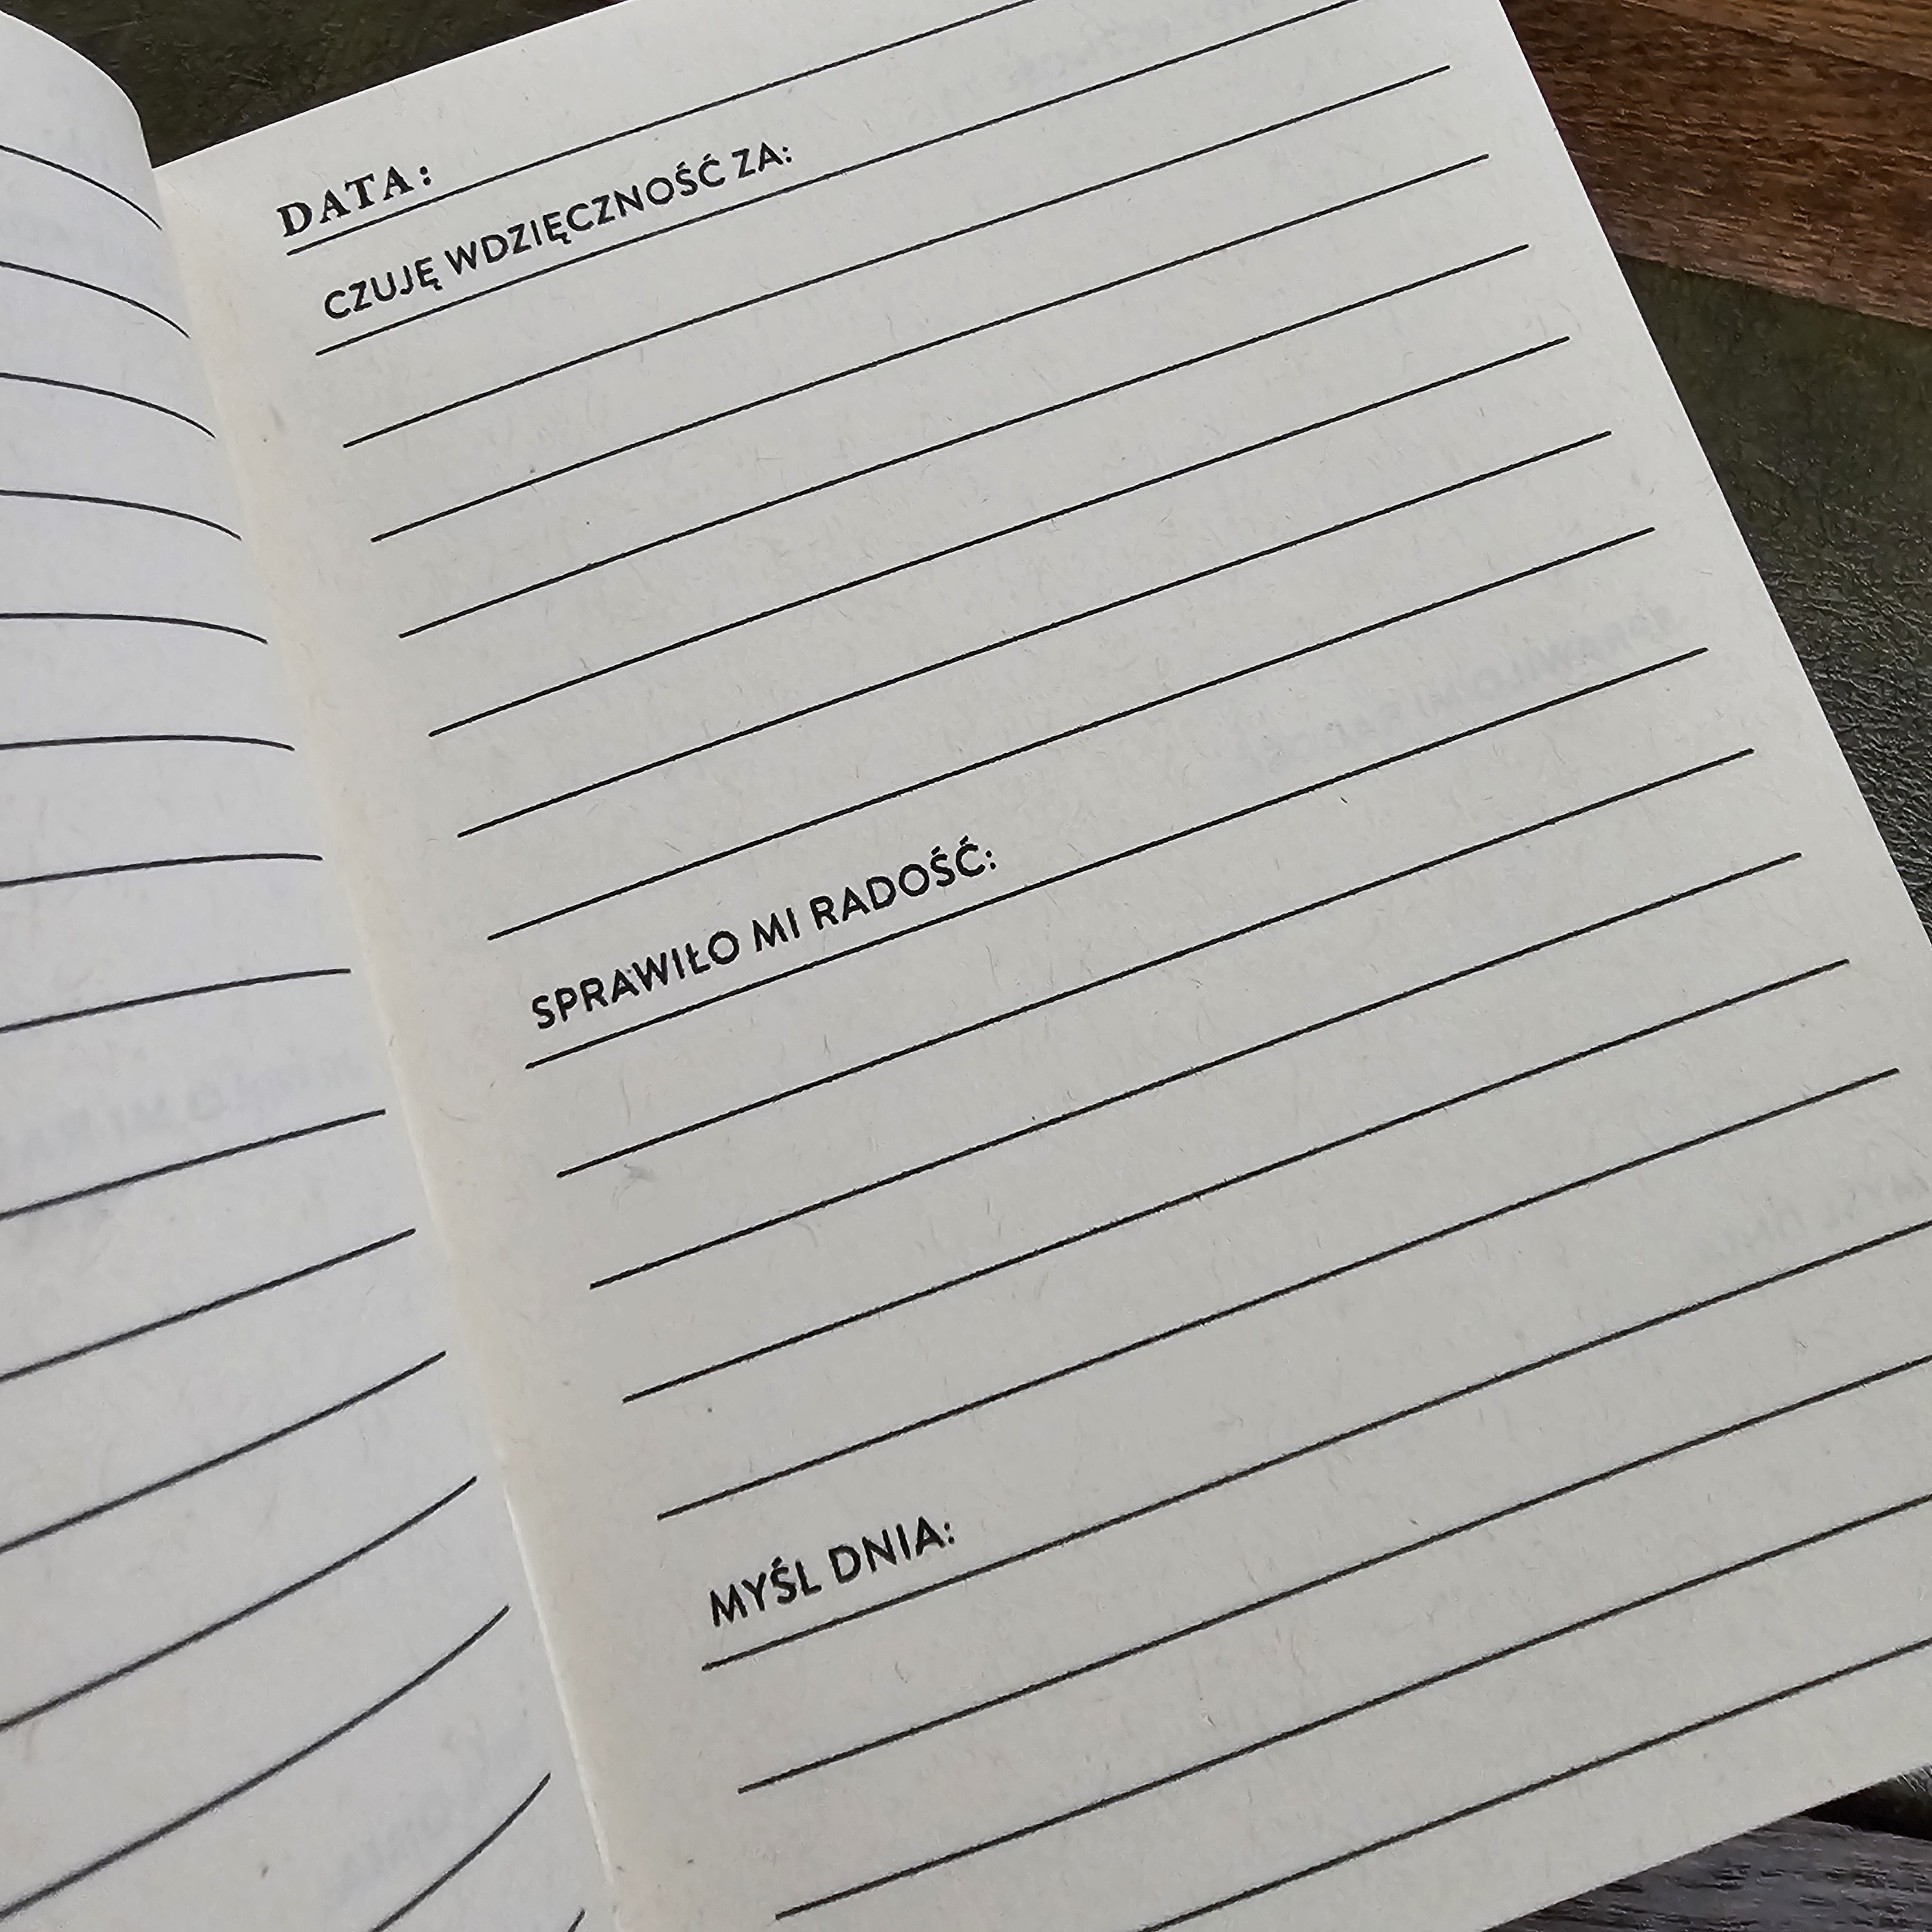 DATA:
CZUJĘ WDZIĘCZNOŚĆ ZA:
SPRAWIŁO MI RADOŚĆ:
MYŚL DNIA: